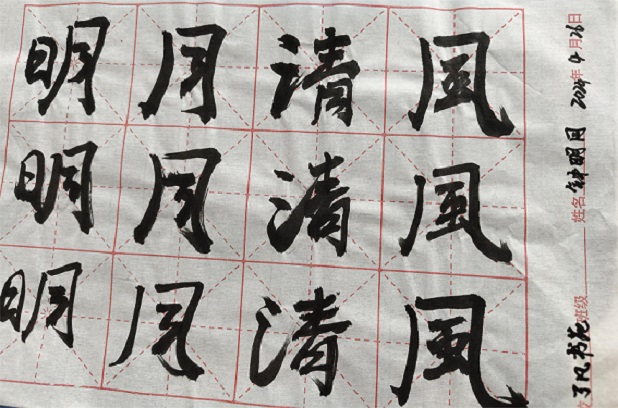 明月清風
明月清風
明月清風
了凡书苑 班级 姓名 钟明月 2024年4月26日